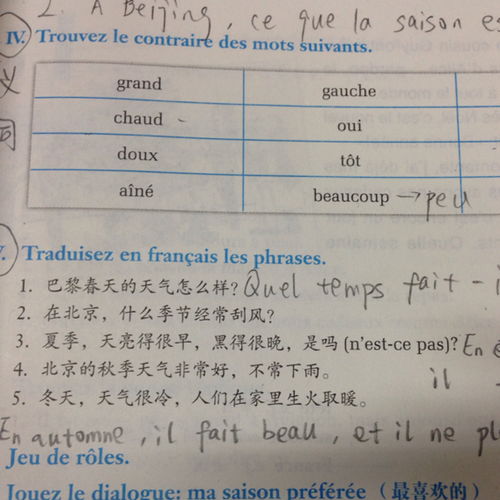 2. A Beijing, ce que la saison
IV. Trouvez le contraire des mots suivants.
义
grand gauche
chaud oui
同
doux tôt
aîné beaucoup → peu
V. Traduisez en français les phrases.
1. 巴黎春天的天气怎么样? Quel temps fait-
2. 在北京，什么季节经常刮风?
3. 夏季，天亮得很早，黑得很晚，是吗 (n'est-ce pas)? En
4. 北京的秋季天气非常好，不常下雨。 il
5. 冬天，天气很冷，人们在家里生火取暖。
En automne, il fait beau, et il ne
Jeu de rôles.
Jouez le dialogue: ma saison préférée (最喜欢的)